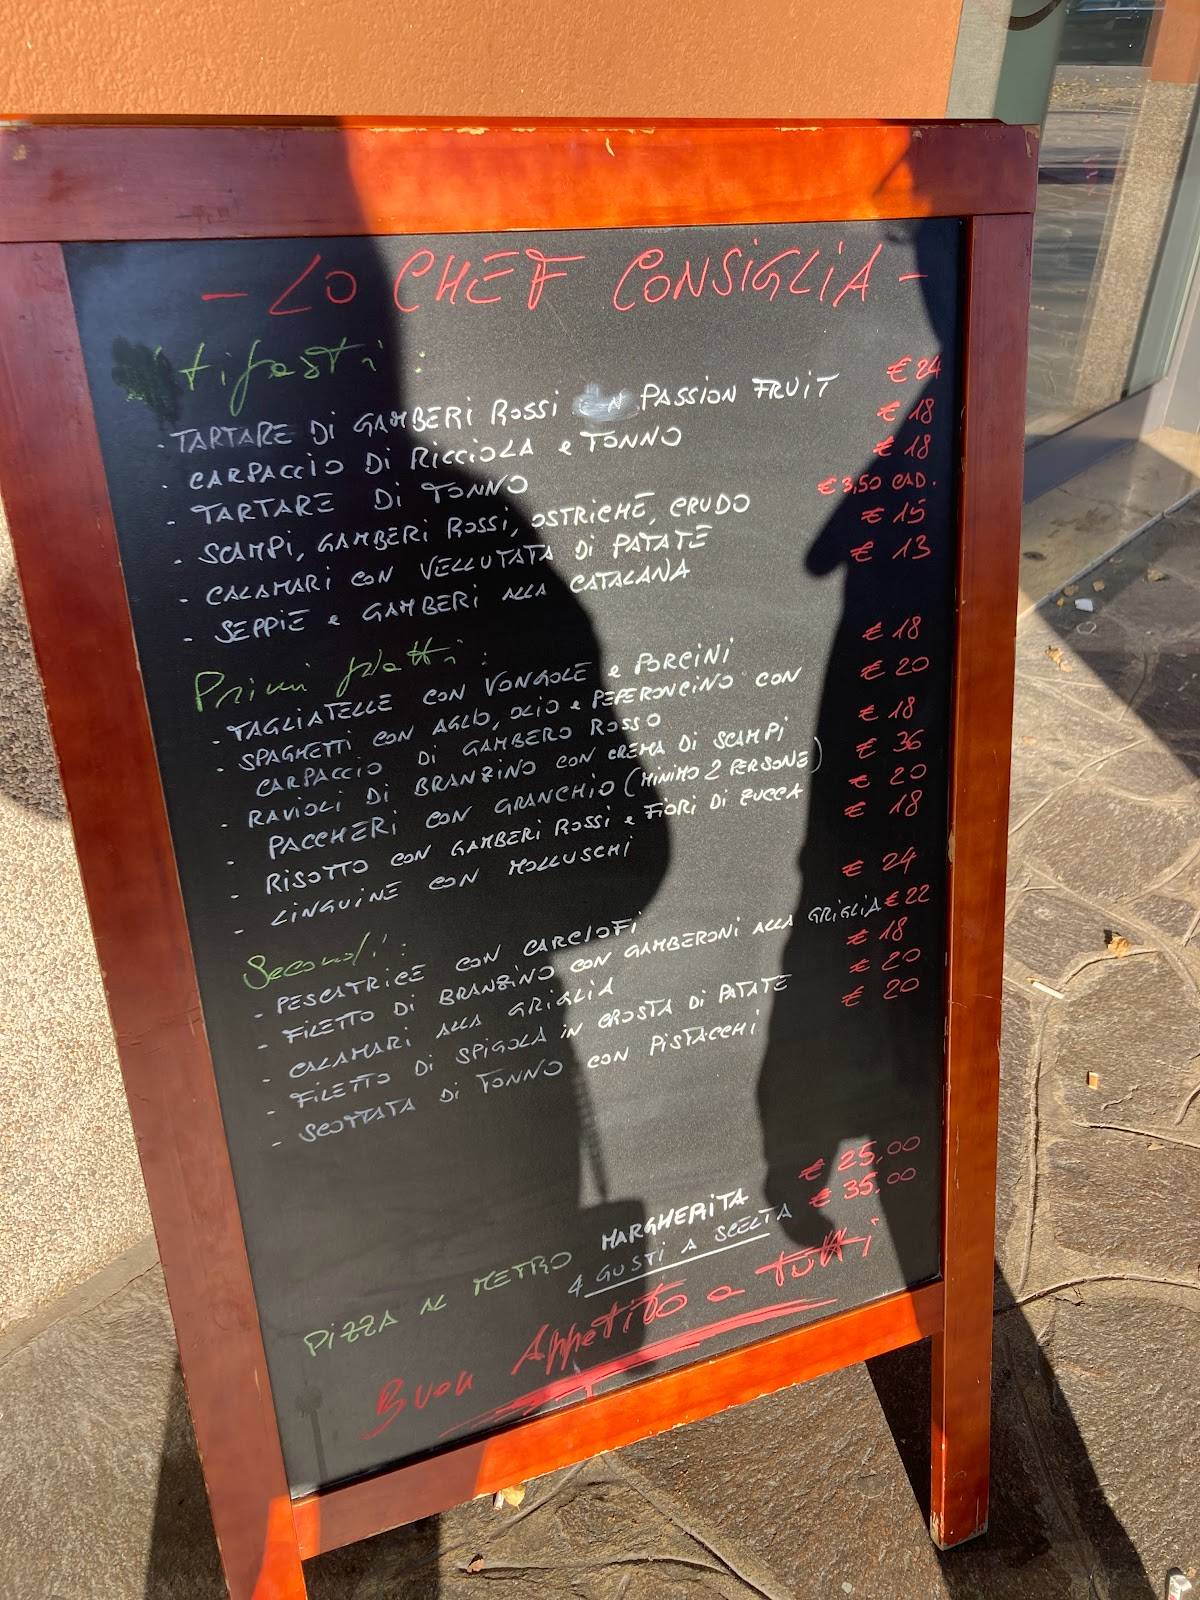 - LO CHEF CONSIGLIA -
Antipasti:
- TARTARE DI GAMBERI ROSSI CON PASSION FRUIT € 24
- CARPACCIO DI RICCIOLA e TONNO € 18
- TARTARE DI TONNO € 18
- SCAMPI, GAMBERI ROSSI, OSTRICHE, CRUDO € 3,50 CAD.
- CALAMARI CON VELLUTATA DI PATATE € 15
- SEPPIE e GAMBERI ALLA CATALANA € 13
Primi piatti:
- TAGLIATELLE CON VONGOLE e PORCINI € 18
- SPAGHETTI CON AGLIO, OLIO e PEPERONCINO CON € 20
CARPACCIO DI GAMBERO ROSSO
- RAVIOLI DI BRANZINO CON CREMA DI SCAMPI € 18
- PACCHERI CON GRANCHIO (MINIMO 2 PERSONE) € 36
- RISOTTO CON GAMBERI ROSSI e FIORI DI ZUCCA € 20
- LINGUINE CON MOLLUSCHI € 18
Secondi:
- PESCATRICE CON CARCIOFI € 24
- FILETTO DI BRANZINO CON GAMBERONI ALLA GRIGLIA € 22
- CALAMARI ALLA GRIGLIA € 18
- FILETTO DI SPIGOLA IN CROSTA DI PATATE € 20
- SCOTTATA DI TONNO CON PISTACCHI € 20
PIZZA AL METRO MARGHERITA € 25,00
4 GUSTI A SCELTA € 35,00
Buon Appetito a tutti